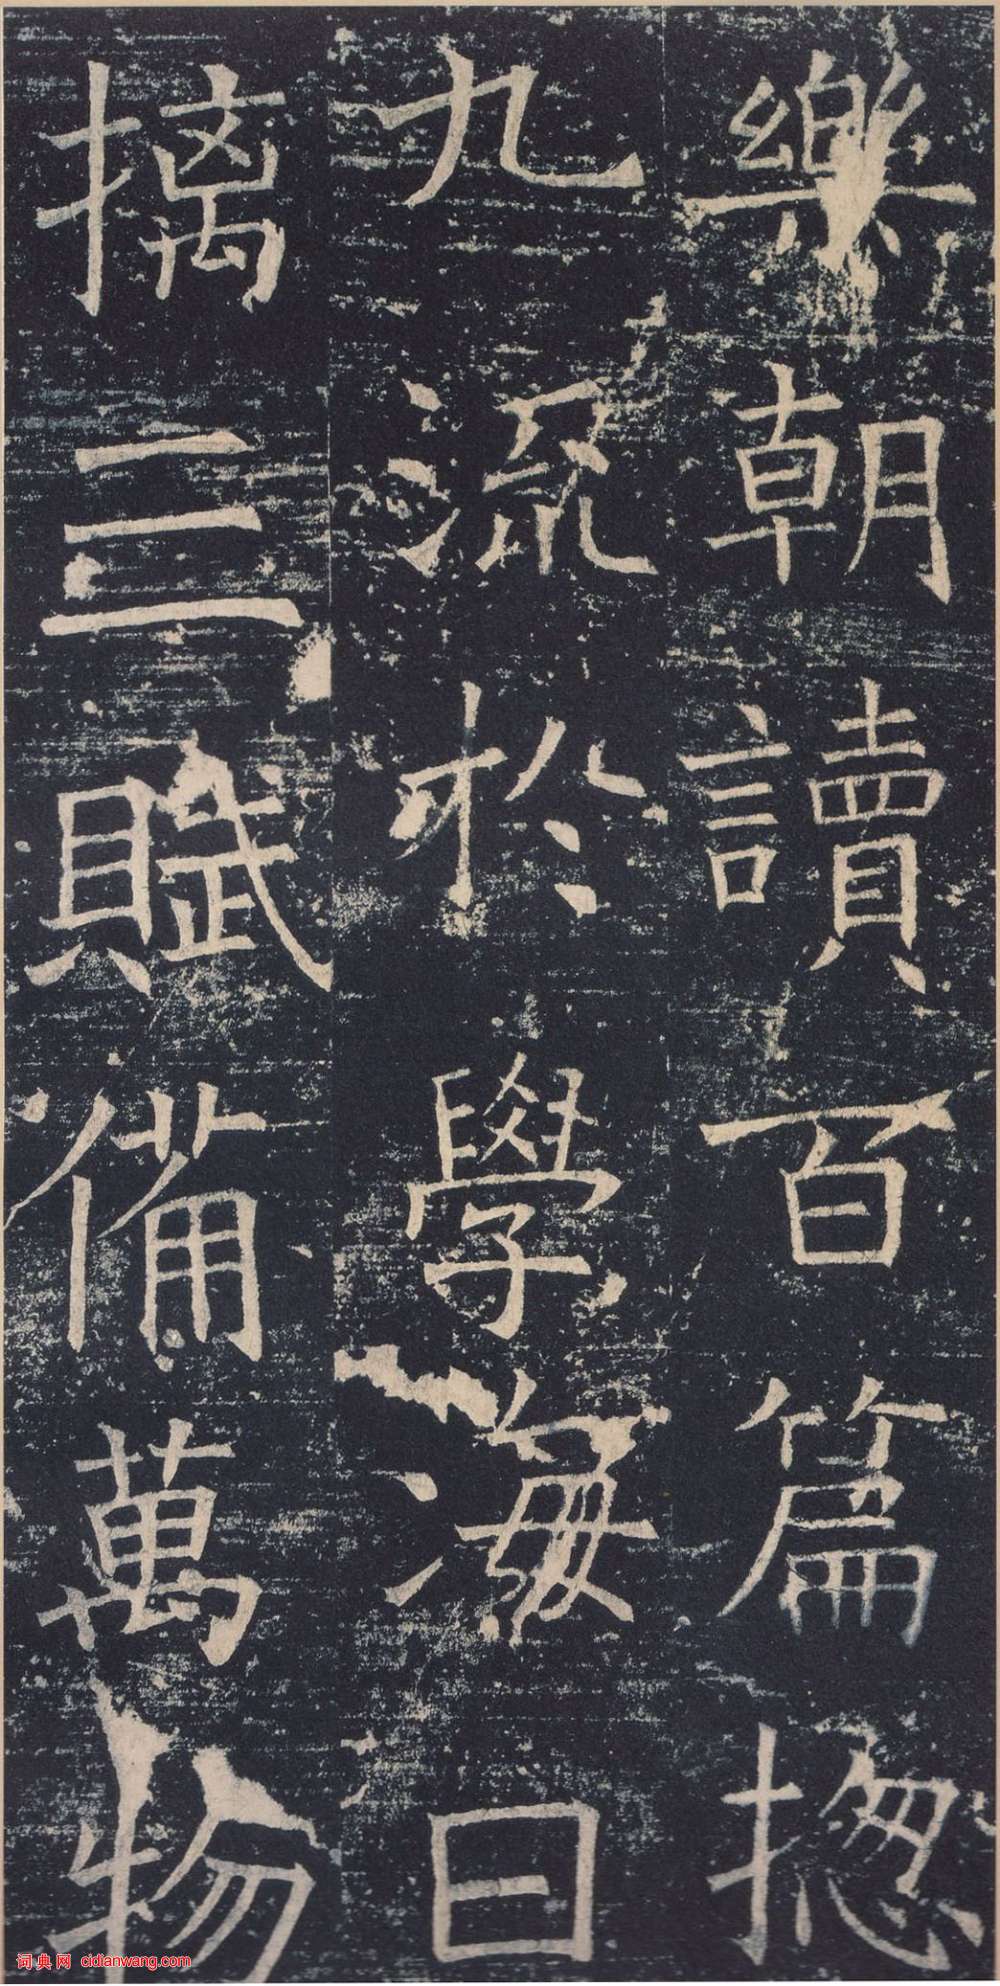 樂朝讀百篇揔
九流於學海日
摛三賦備萬物
词典网 cidianwang.com